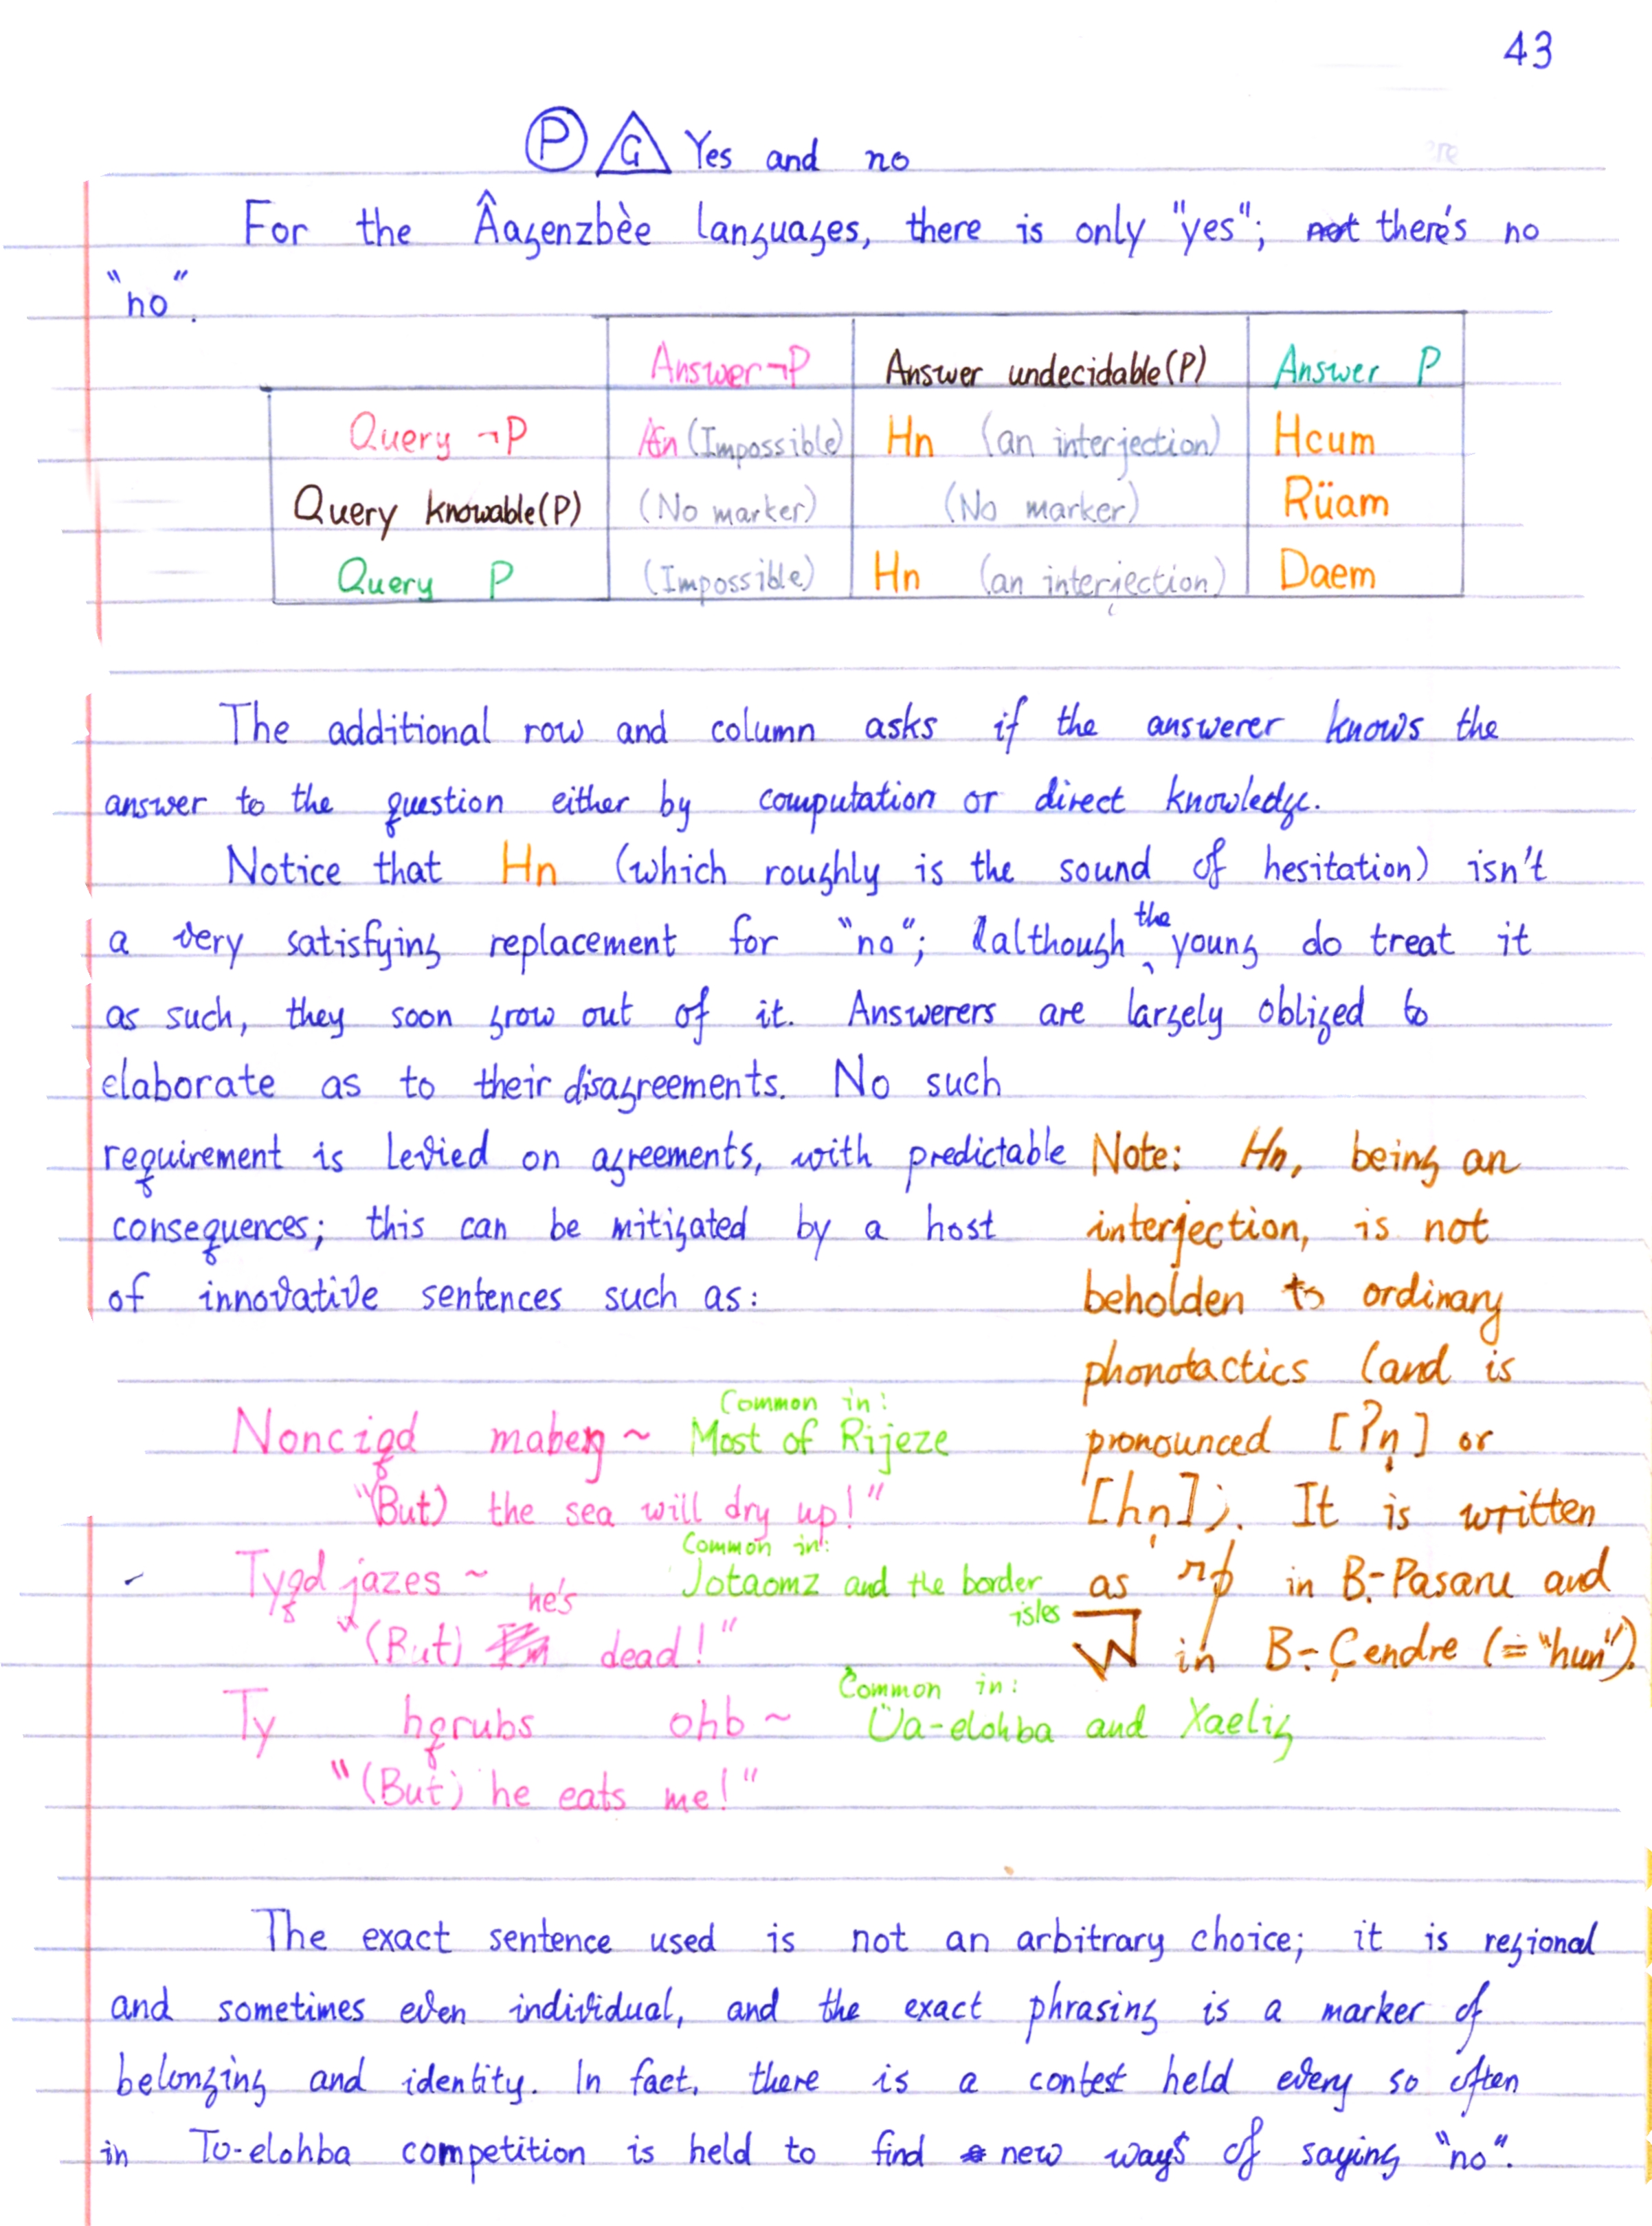 43
P G Yes and no
For the Âagenzbèe languages, there is only "yes"; not there's no
"no".
Answer ¬P Answer undecidable(P) Answer P
Query ¬P (Impossible) Hn (an interjection) Hcum
Query knowable(P) (No marker) (No marker) Rüam
Query P (Impossible) Hn (an interjection) Daem
The additional row and column asks if the answerer knows the
answer to the question either by computation or direct knowledge.
Notice that Hn (which roughly is the sound of hesitation) isn't
a very satisfying replacement for "no"; although the young do treat it
as such, they soon grow out of it. Answerers are largely obliged to
elaborate as to their disagreements. No such
requirement is levied on agreements, with predictable
consequences; this can be mitigated by a host
of innovative sentences such as:
Note: Hn, being an
interjection, is not
beholden to ordinary
phonotactics (and is
pronounced [ʔn̩] or
[hn̩]). It is written
as in B.-Pasaru and
in B.-Çendre (= "hun").
Common in:
Noncigd ~ Most of Rijeze
"(But) the sea will dry up!"
Common in:
Tyqd jazes ~ Jotaomz and the border
isles
he's
"(But) dead!"
Common in:
Ty hqrubs ohb ~ Üa-elohba and Xaelig
"(But) he eats me!"
The exact sentence used is not an arbitrary choice; it is regional
and sometimes even individual, and the exact phrasing is a marker of
belonging and identity. In fact, there is a contest held every so often
in To-elohba competition is held to find new ways of saying "no".